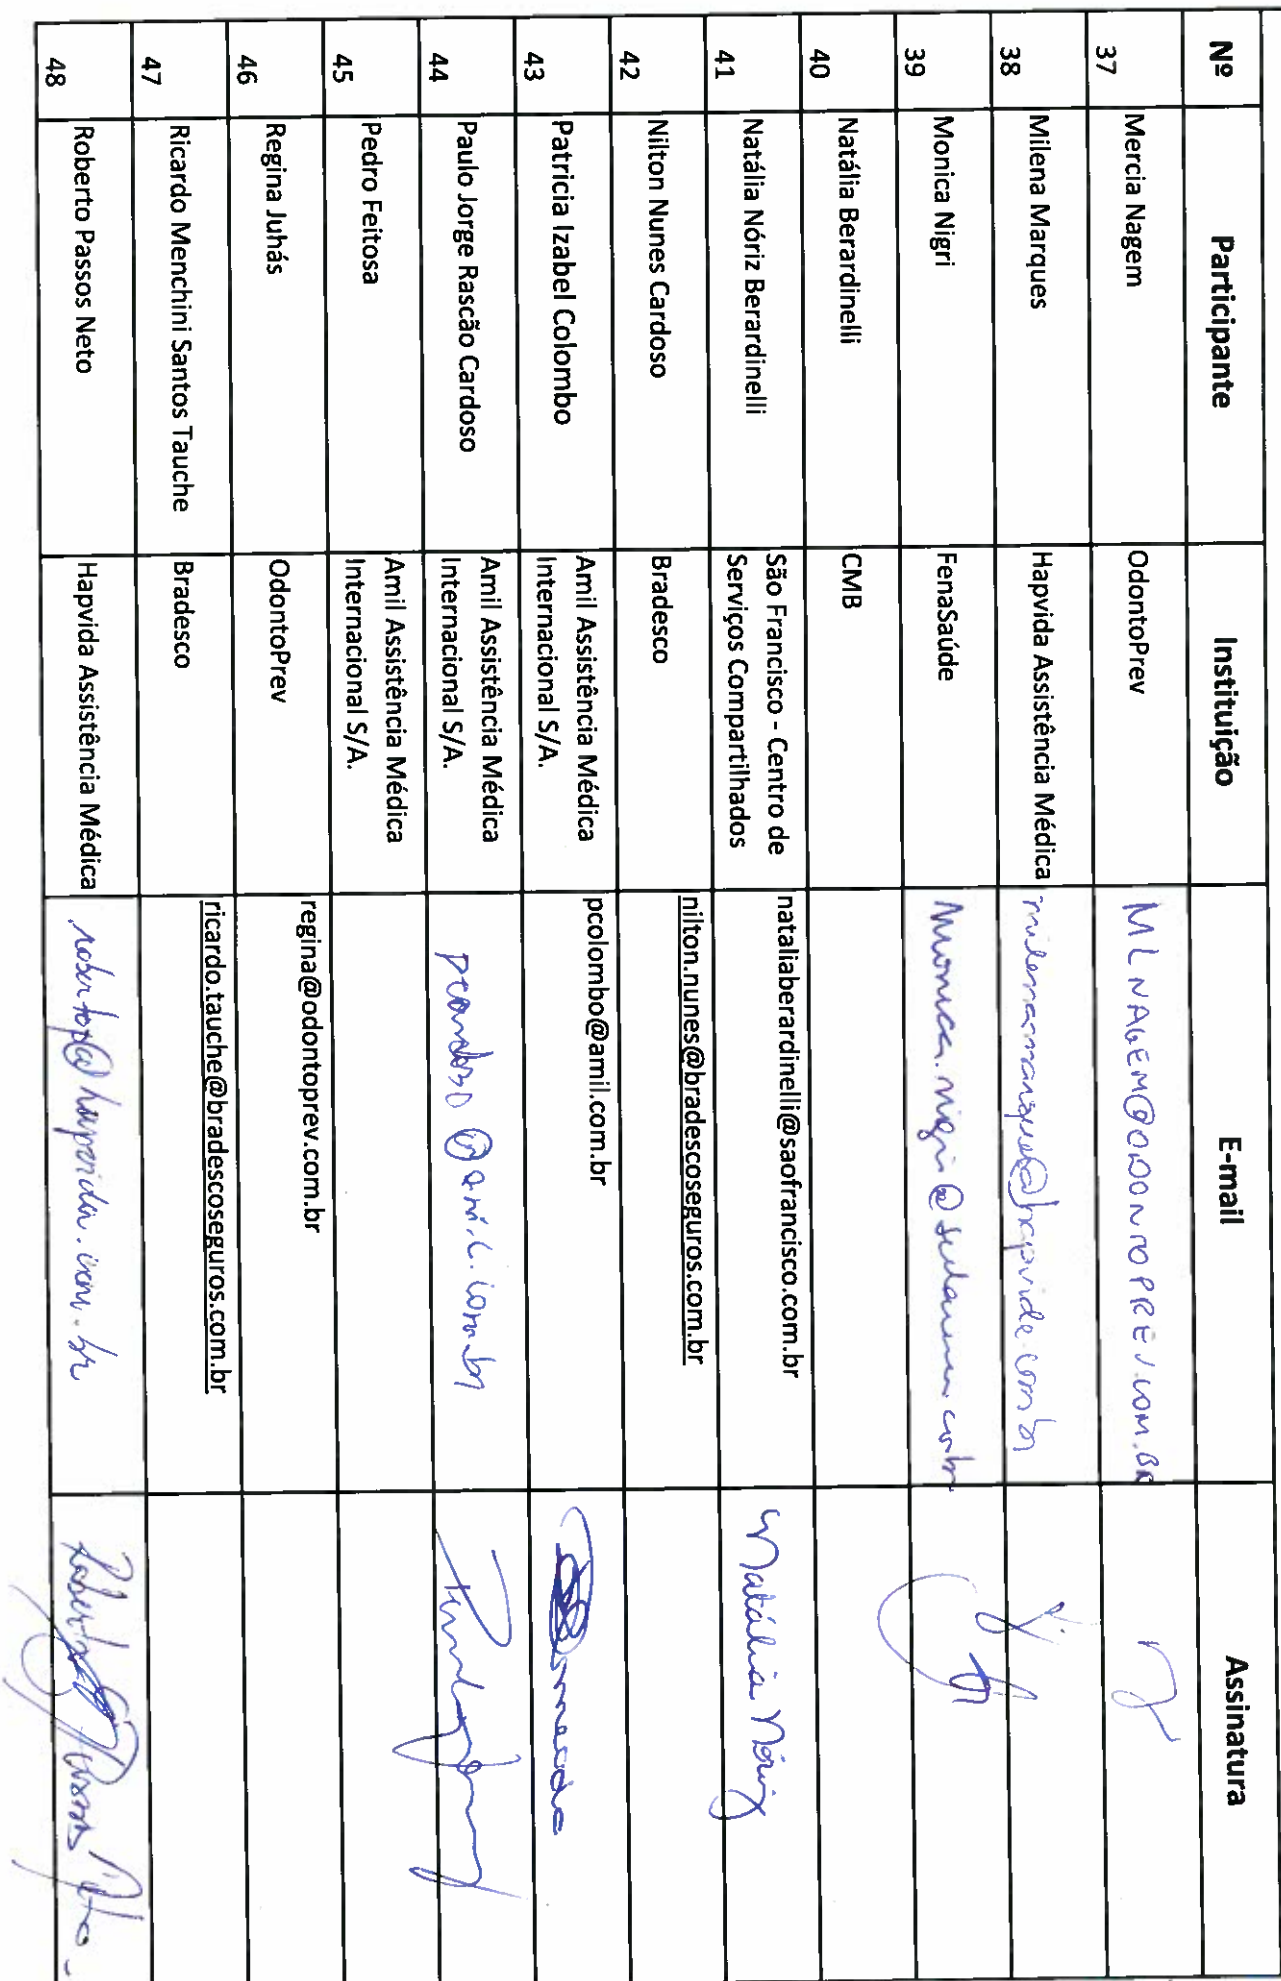 Nº Participante Instituição E-mail Assinatura
37 Mercia Nagem OdontoPrev MLNAGEM@ODONTOPREV.COM.BR
38 Milena Marques Hapvida Assistência Médica milenamarques@hapvida.com.br
39 Monica Nigri FenaSaúde monica.nigri@
40 Natália Berardinelli CMB
41 Natália Nóriz Berardinelli São Francisco - Centro de
Serviços Compartilhados nataliaberardinelli@saofrancisco.com.br Natália Nóriz
42 Nilton Nunes Cardoso Bradesco nilton.nunes@bradescoseguros.com.br
43 Patricia Izabel Colombo Amil Assistência Médica
Internacional S/A. pcolombo@amil.com.br
44 Paulo Jorge Rascão Cardoso Amil Assistência Médica
Internacional S/A. pcardoso@amil.com.br
45 Pedro Feitosa Amil Assistência Médica
Internacional S/A.
46 Regina Juhás OdontoPrev regina@odontoprev.com.br
47 Ricardo Menchini Santos Tauche Bradesco ricardo.tauche@bradescoseguros.com.br
48 Roberto Passos Neto Hapvida Assistência Médica robertop@hapvida.com.br Roberto Passos Neto